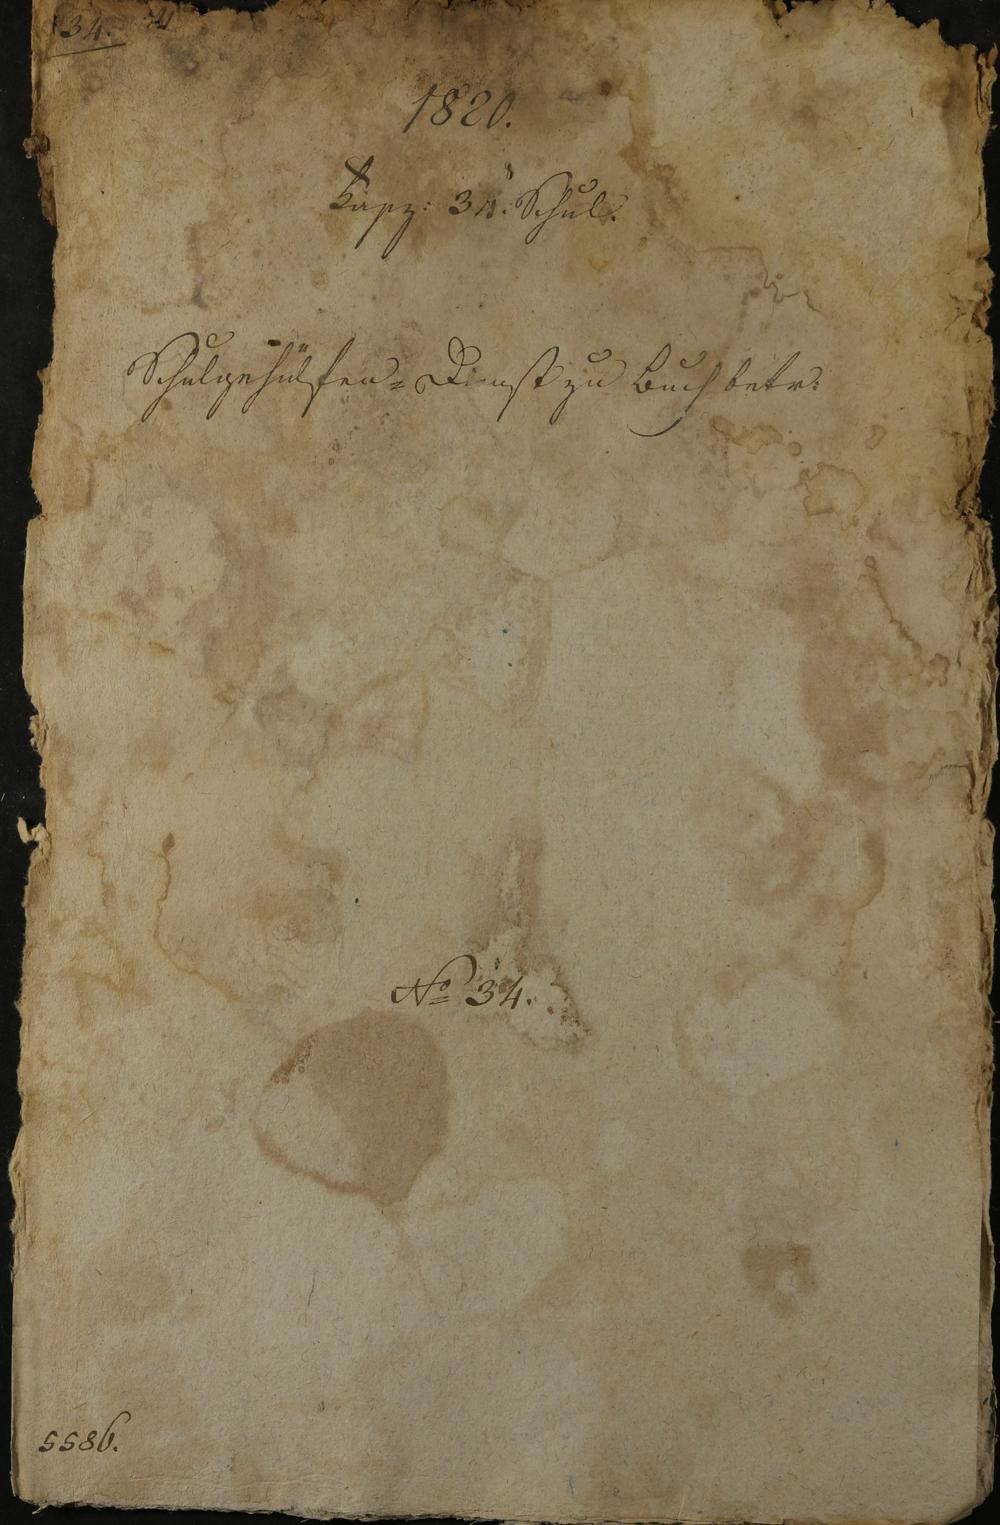 34.
1820.
Schul.
Schulgehülfen=Dienst zu Buch betr:
No 34.
5586.